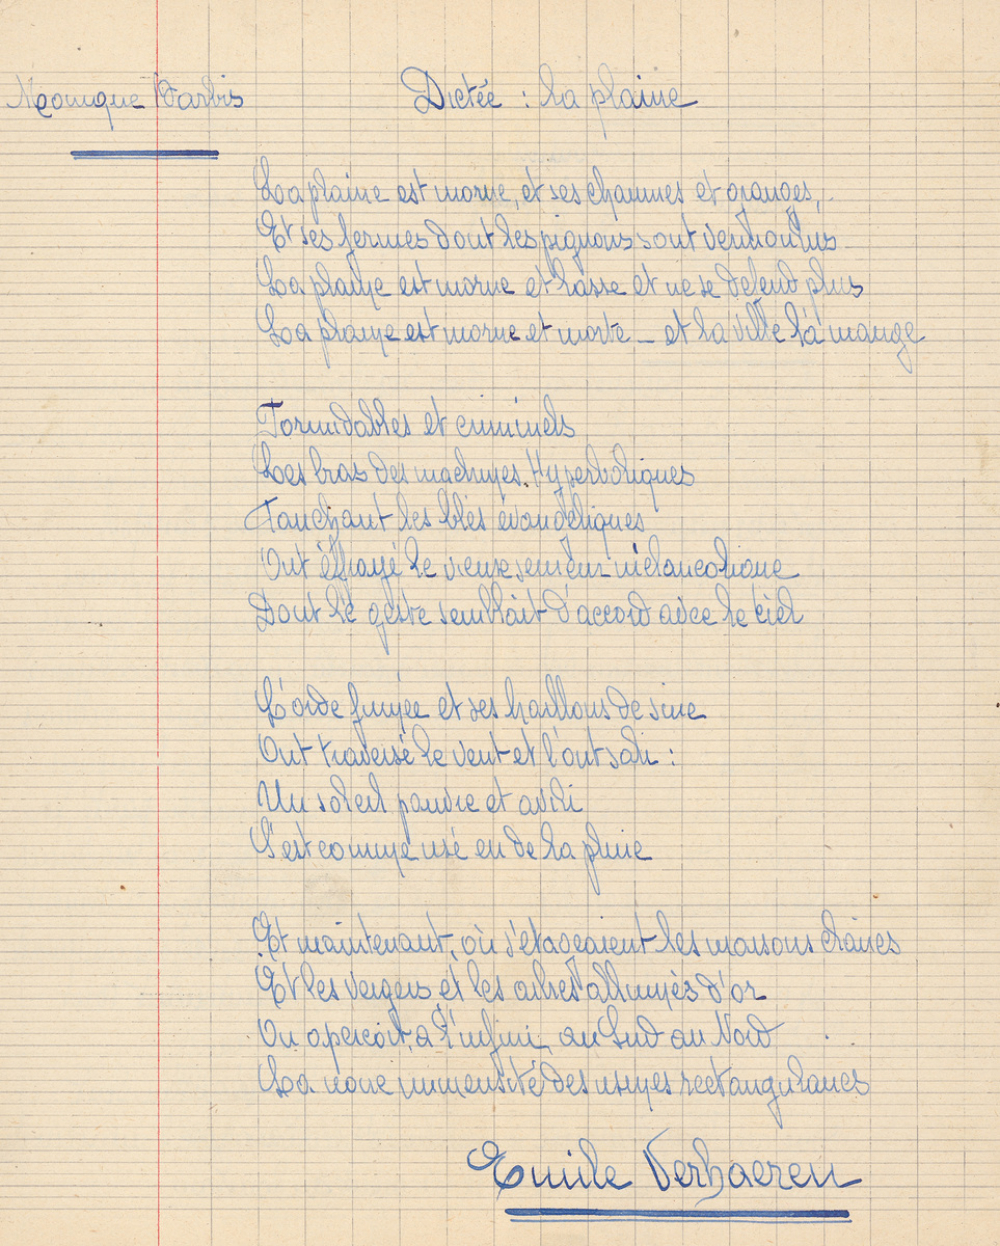 Monique Barbis
Dictée : la plaine
La plaine est morne, et ses chaumes et granges,
Et ses fermes dont les pignons sont vermoulus
La plaine est morne et lasse et ne se défend plus
La plaine est morne et morte _ et la ville la mange
Formidables et criminels
Les bras des machines. Hyperboliques
Fauchant les blés évangéliques
Ont éffrayé le vieux semeur mélancolique
Dont le geste semblait d'accord avec le ciel
L'orde fumée et ses haillons de suie
Ont traversé le vent et l'ont sali :
Un soleil pauvre et avili
S'est comme usé en de la pluie
Et maintenant, où s'étageaient les maisons claires
Et les vergers et les arbres allumés d'or
On aperçoit, à l'infini, au Sud au Nord
La noire immensité des usines rectangulaires
Emile Verhaeren